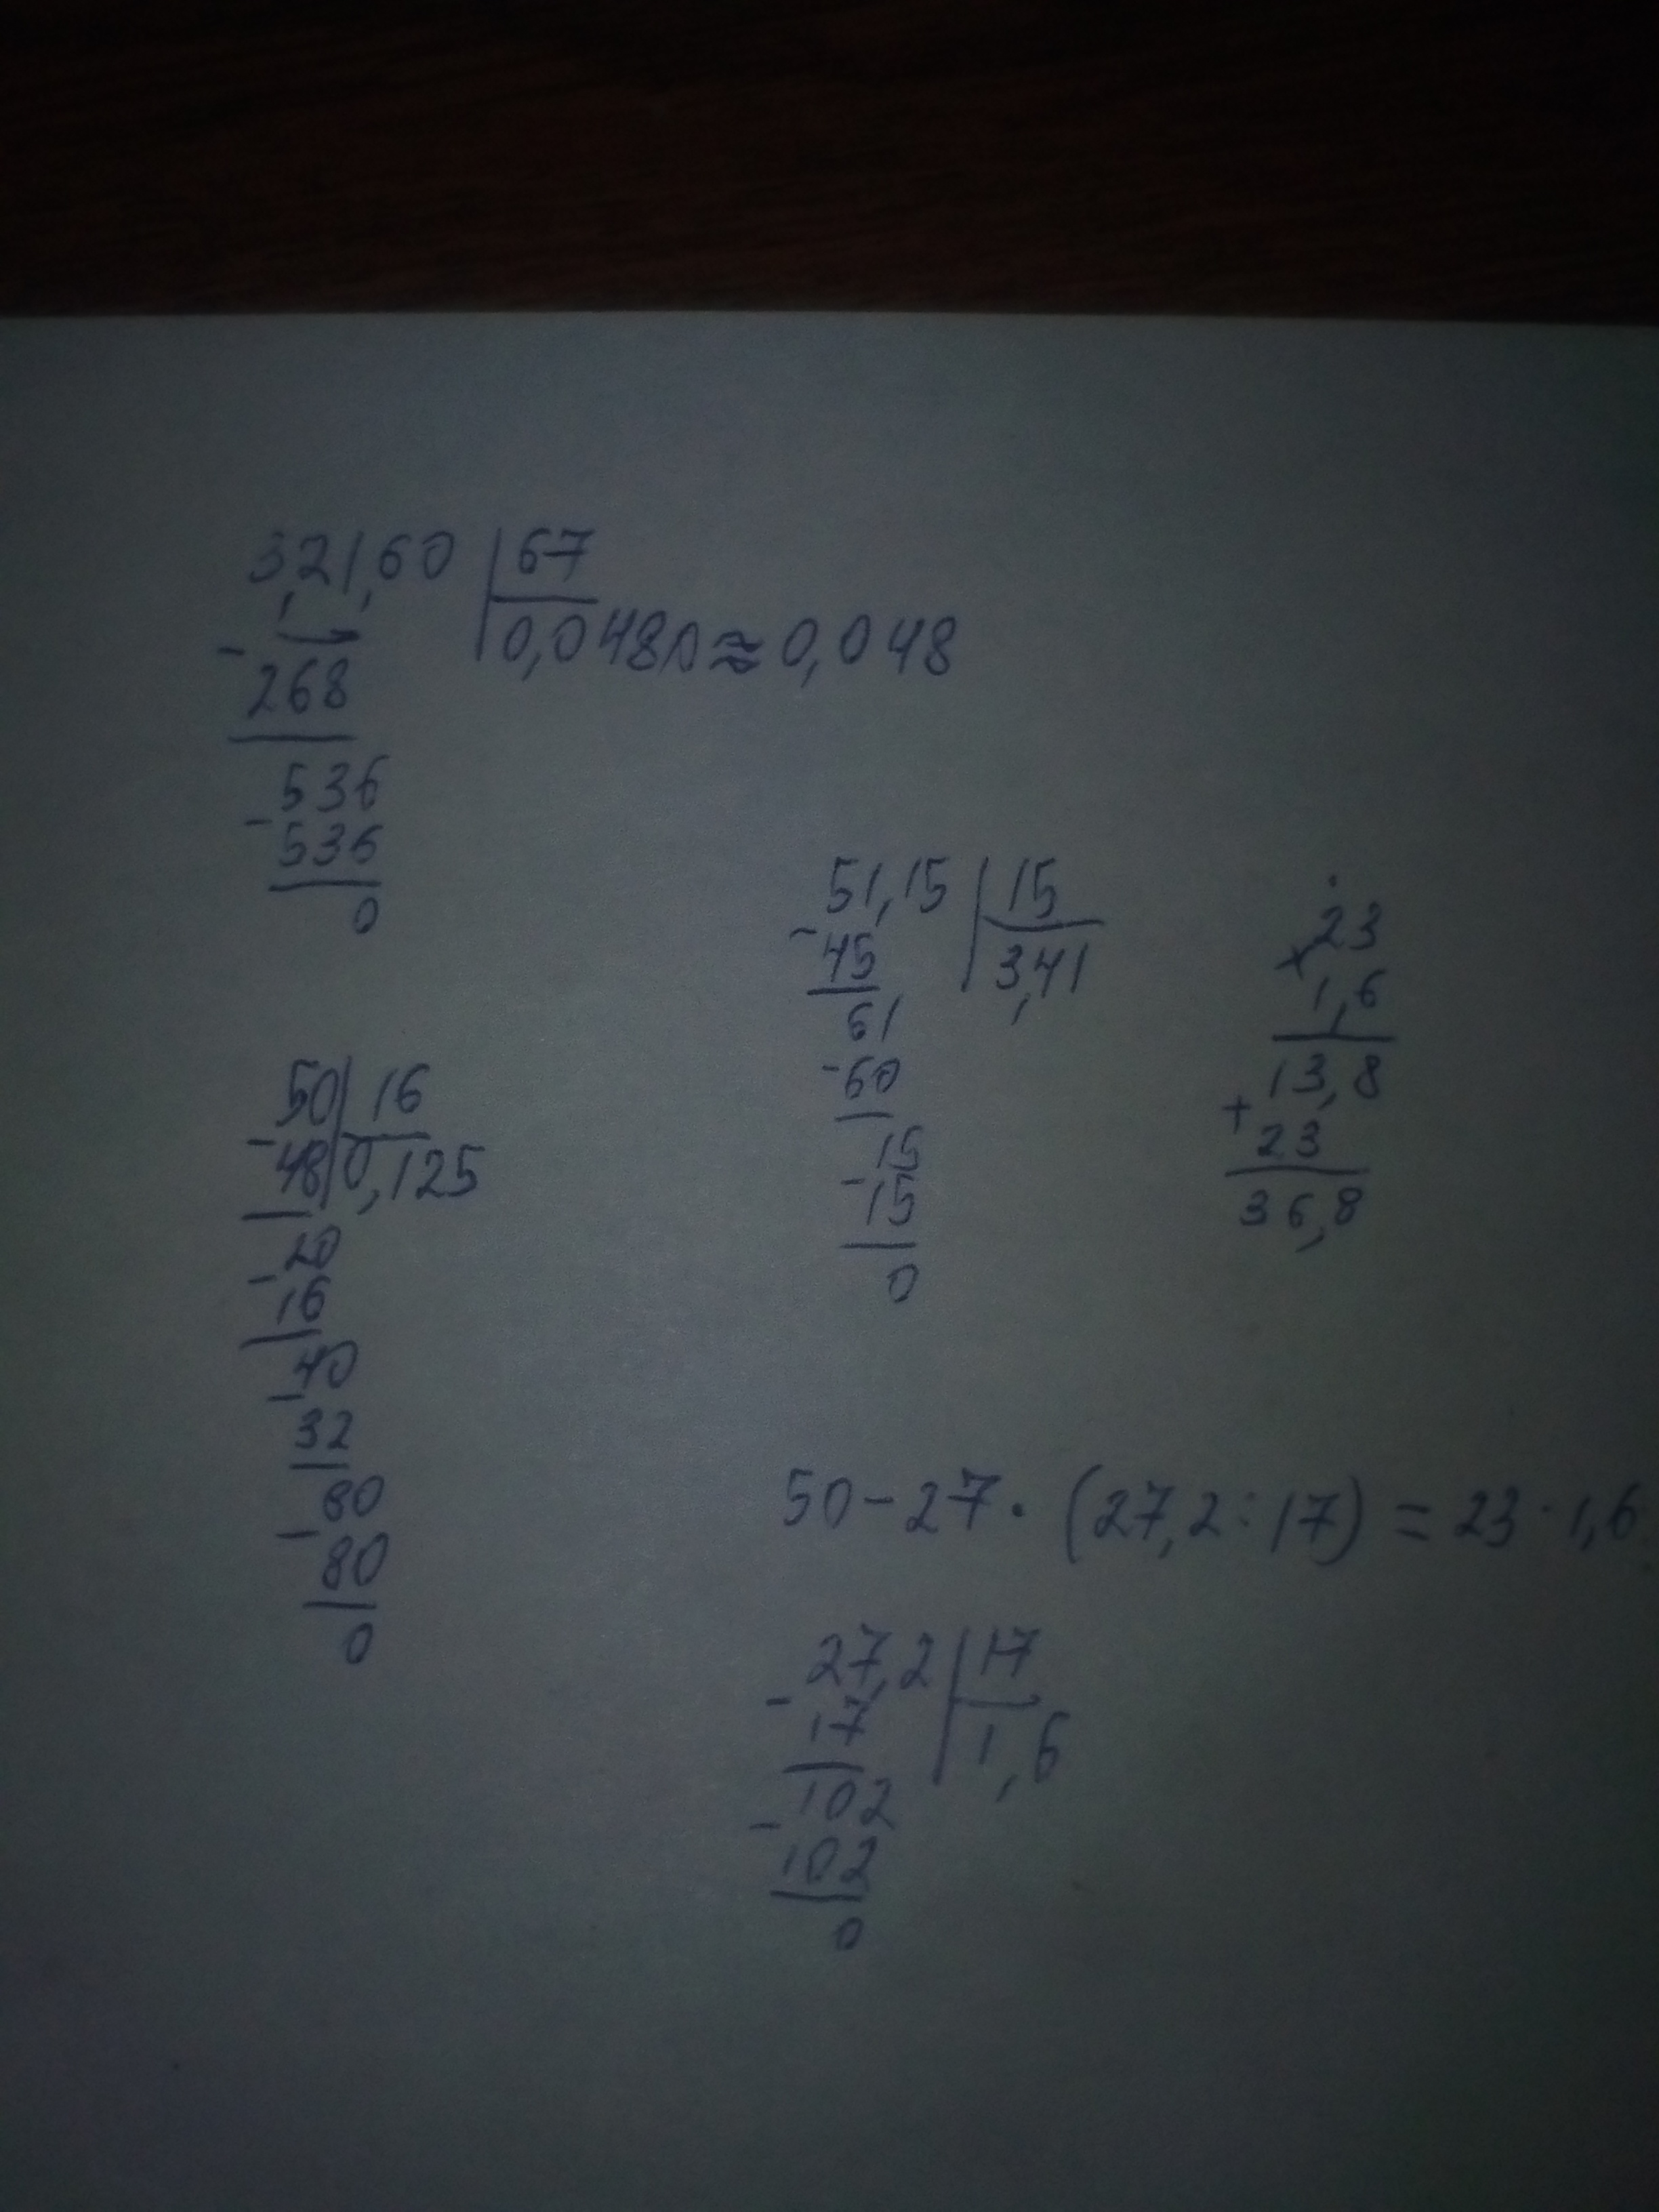 3,21,60 | 67
0,0480 ≈ 0,048
- 268
536
- 536
0
50 | 16
- 48 | 0,125
20
- 16
40
- 32
80
- 80
0
51,15 | 15
- 45 | 3,41
61
- 60
15
- 15
0
23
× 1,6
13,8
+ 23
36,8
50 - 27 · (27,2 : 17) = 23 · 1,6
27,2 | 17
- 17 | 1,6
102
- 102
0